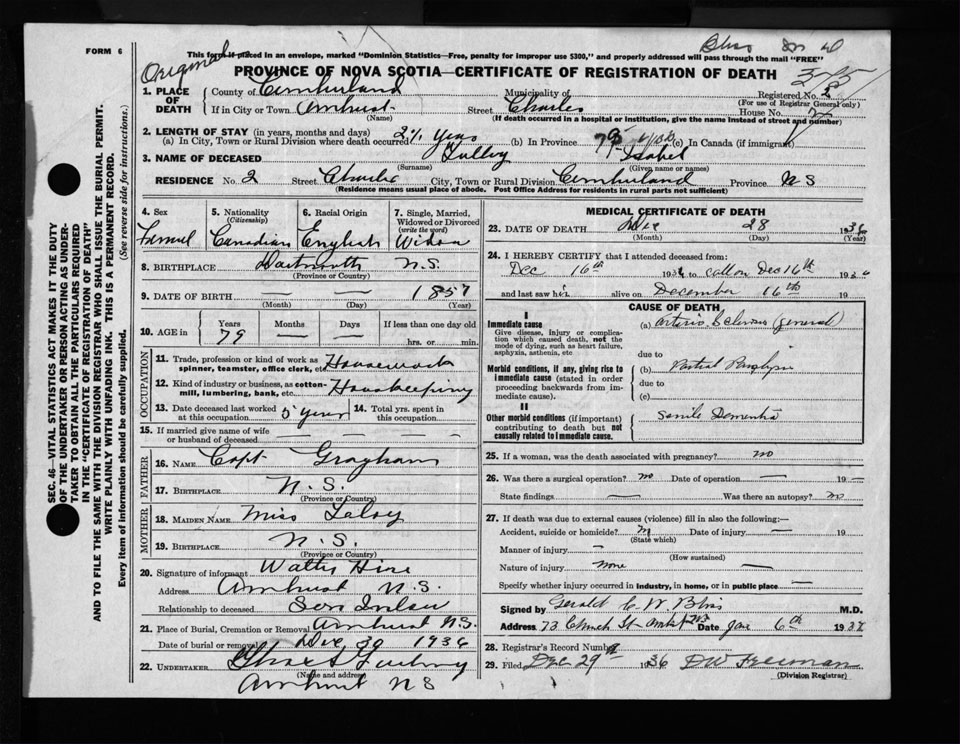 FORM 6
This form if placed in an envelope, marked "Dominion Statistics—Free, penalty for improper use $300," and properly addressed will pass through the mail "FREE"
Original
PROVINCE OF NOVA SCOTIA—CERTIFICATE OF REGISTRATION OF DEATH
1. PLACE OF DEATH
County of Cumberland Municipality of Registered No.
(For use of Registrar General only)
If in City or Town Amherst Street Charles House No. 2
(Name) (If death occurred in a hospital or institution, give the name instead of street and number)
2. LENGTH OF STAY (in years, months and days)
(a) In City, Town or Rural Division where death occurred years (b) In Province 79 (c) In Canada (if immigrant)
3. NAME OF DECEASED Isabel
(Surname) (Given name or names)
RESIDENCE No. 2 Street Charles City, Town or Rural Division Cumberland Province N S
(Residence means usual place of abode. Post Office Address for residents in rural parts not sufficient)
4. Sex
5. Nationality (Citizenship) Canadian
6. Racial Origin English
7. Single, Married, Widowed or Divorced (write the word) Widow
8. BIRTHPLACE Dartmouth N.S.
(Province or Country)
9. DATE OF BIRTH — — 1857
(Month) (Day) (Year)
10. AGE in Years Months Days If less than one day old
79 — — hrs. or min.
OCCUPATION
11. Trade, profession or kind of work as spinner, teamster, office clerk, etc. Housework
12. Kind of industry or business, as cotton-mill, lumbering, bank, etc. Housekeeping
13. Date deceased last worked at this occupation 5 years 14. Total yrs. spent in this occupation
15. If married give name of wife or husband of deceased — — — —
FATHER
16. NAME Capt Graham
17. BIRTHPLACE N.S.
(Province or Country)
MOTHER
18. MAIDEN NAME Miss
19. BIRTHPLACE N.S.
(Province or Country)
20. Signature of informant
Address Amherst N.S.
Relationship to deceased Son Inlaw
21. Place of Burial, Cremation or Removal Amherst N.S.
Date of burial or removal Dec 30 1936
22. UNDERTAKER
(Name and address)
Amherst N S
MEDICAL CERTIFICATE OF DEATH
23. DATE OF DEATH Dec 28 1936
(Month) (Day) (Year)
24. I HEREBY CERTIFY that I attended deceased from:
Dec 16th 1936 to call on Dec 16th 1936
and last saw her alive on December 16th 19
CAUSE OF DEATH
I
Immediate cause
Give disease, injury or complication which caused death, not the mode of dying, such as heart failure, asphyxia, asthenia, etc
(a) Arterio Sclerosis (general)
due to
Morbid conditions, if any, giving rise to immediate cause (stated in order proceeding backwards from immediate cause).
(b) Partial Paralysis
due to
(c)
II
Other morbid conditions (if important) contributing to death but not causally related to immediate cause.
Senile Dementia
25. If a woman, was the death associated with pregnancy? no
26. Was there a surgical operation? no Date of operation — 19 —
State findings — Was there an autopsy? no
27. If death was due to external causes (violence) fill in also the following:—
Accident, suicide or homicide? Date of injury — 19
(State which)
Manner of injury —
(How sustained)
Nature of injury none —
Specify whether injury occurred in industry, in home, or in public place —
Signed by Gerald C. W. Bliss M.D.
Address 73 Church St Date Jan 6th 1937
28. Registrar's Record Number
29. Filed Dec 29th 1936 DW Freeman
(Division Registrar)
SEC. 46—VITAL STATISTICS ACT MAKES IT THE DUTY
OF THE UNDERTAKER OR PERSON ACTING AS UNDER-
TAKER TO OBTAIN ALL THE PARTICULARS REQUIRED
IN THE "CERTIFICATE OF REGISTRATION OF DEATH"
AND TO FILE THE SAME WITH THE DIVISION REGISTRAR WHO SHALL ISSUE THE BURIAL PERMIT.
WRITE PLAINLY WITH UNFADING INK. THIS IS A PERMANENT RECORD.
Every item of information should be carefully supplied. (See reverse side for instructions.)